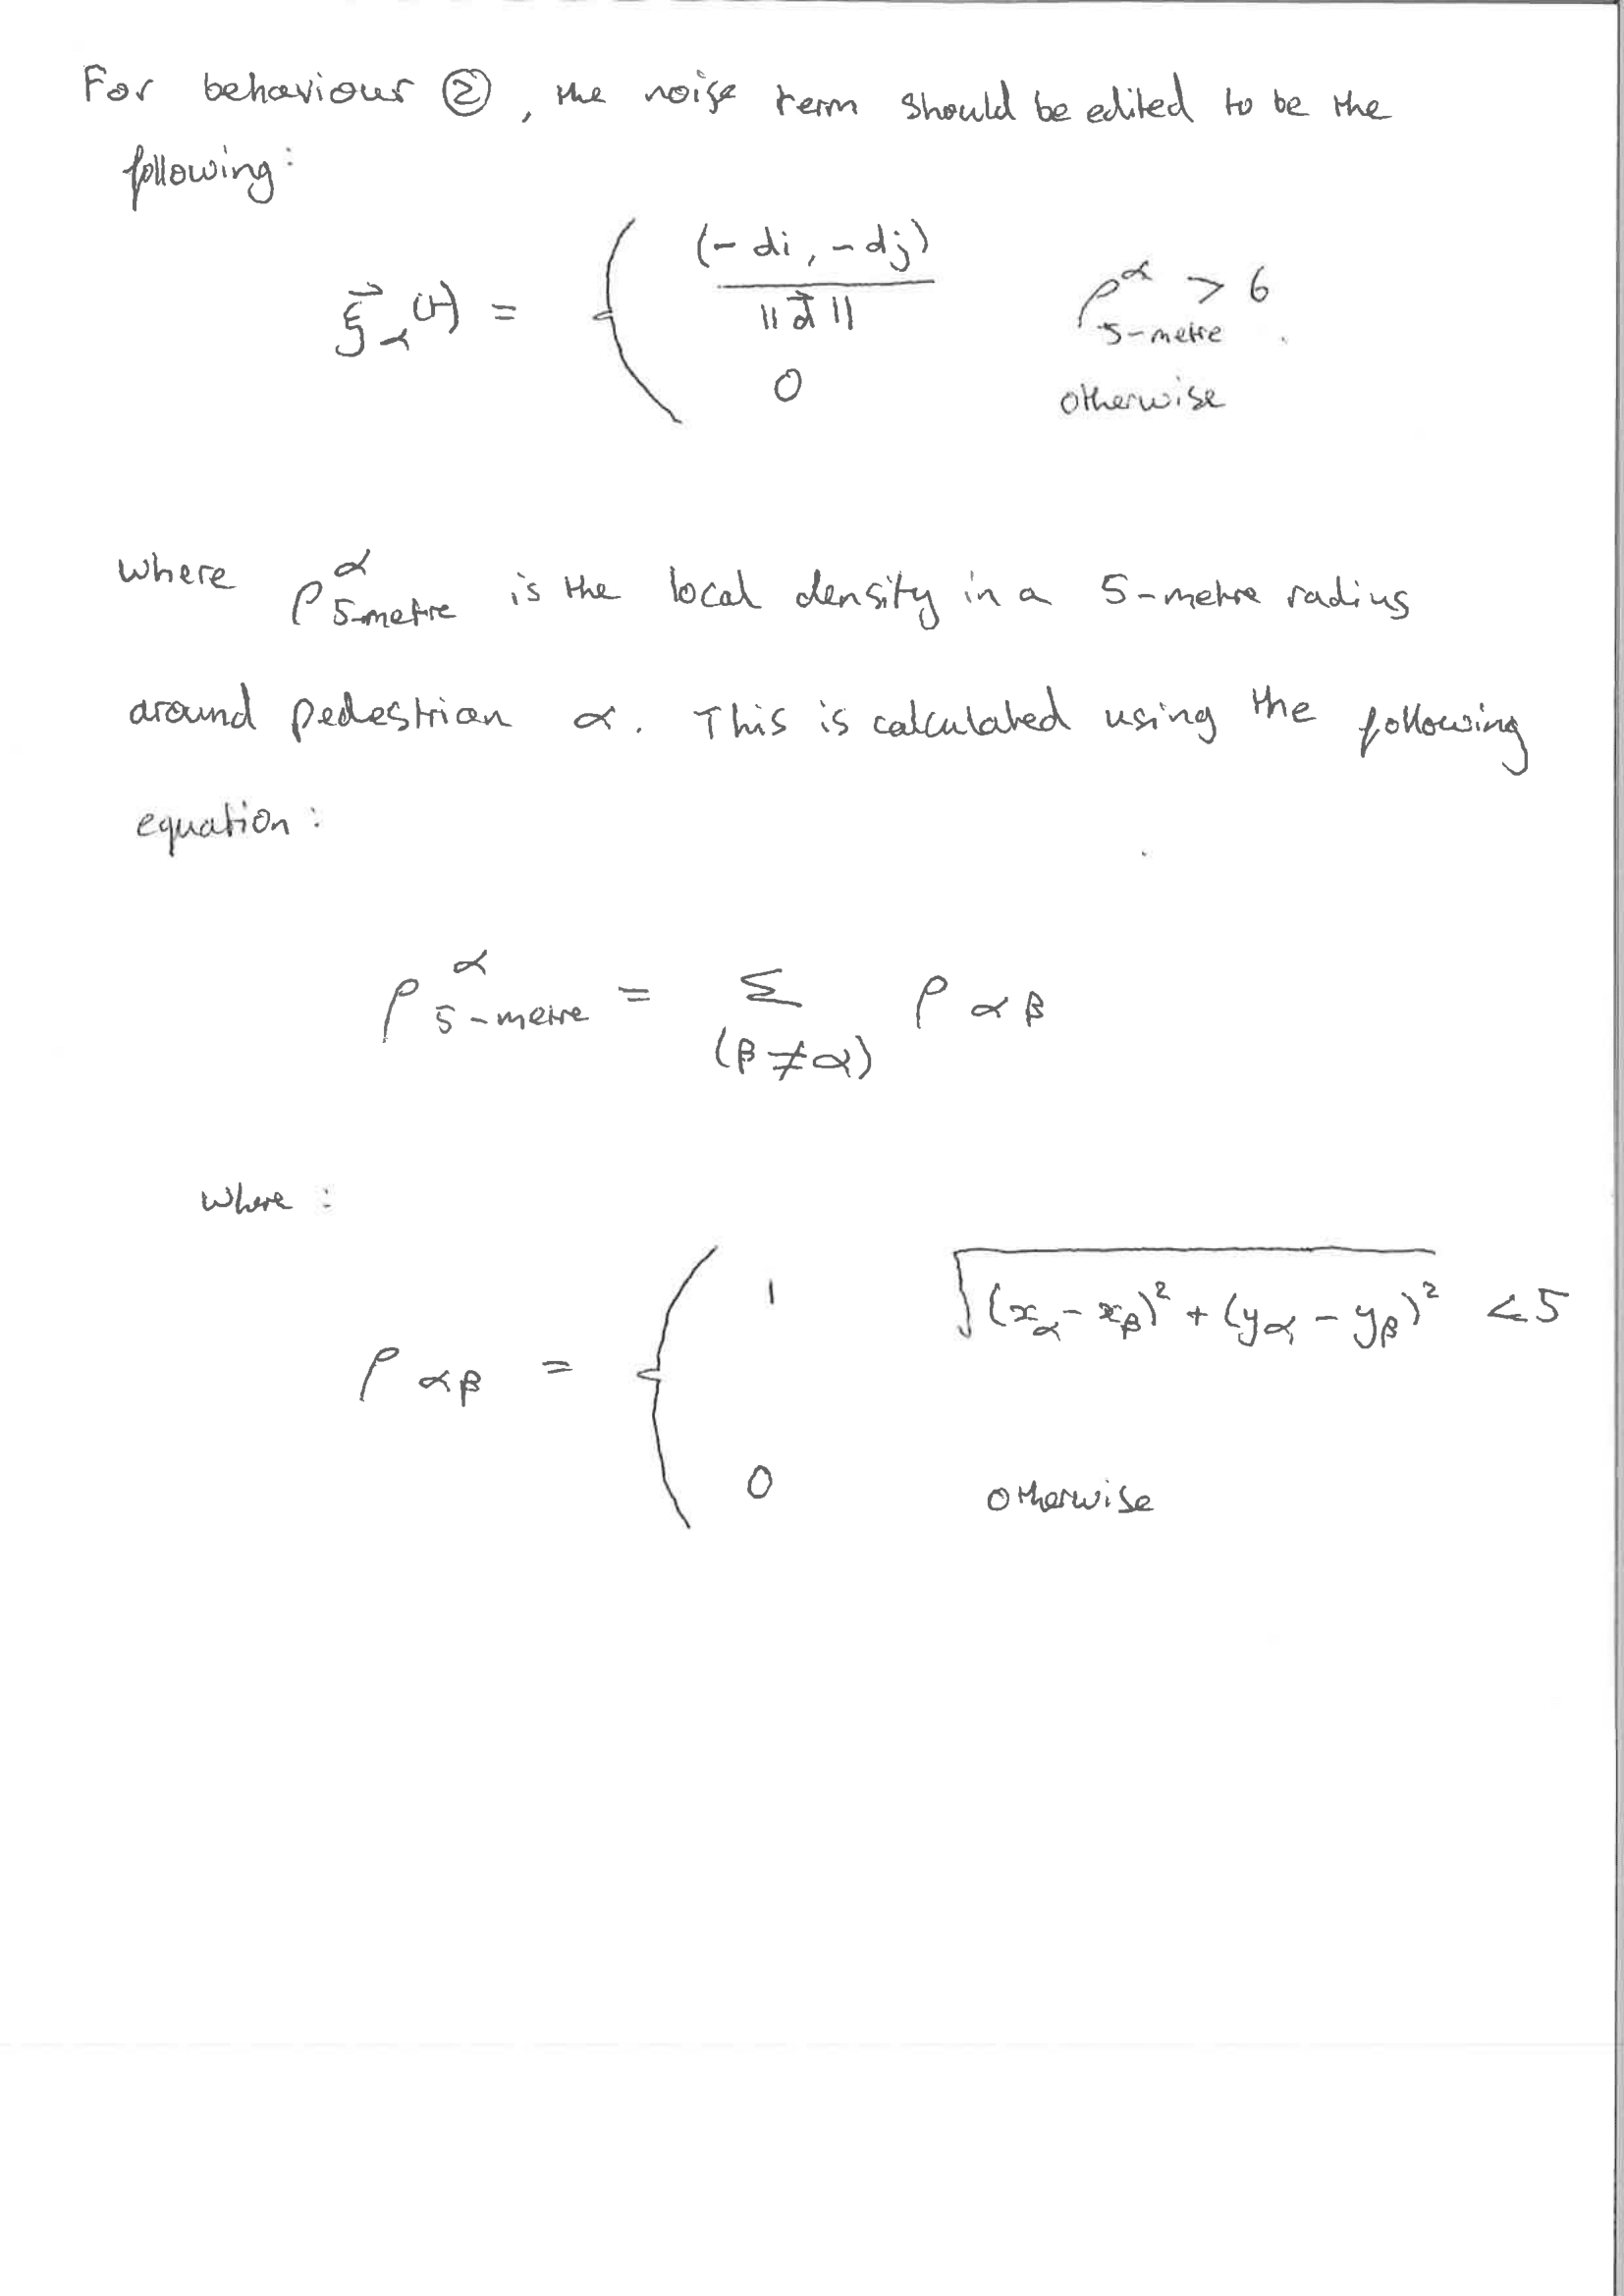 For behaviour ②, the noise term should be edited to be the
following:
ξ⃗_α(t) = { (-di, -dj) / ||d⃗||    ρ^α_5-metre > 6
0    otherwise
where ρ^α_5-metre is the local density in a 5-metre radius
around pedestrian α. This is calculated using the following
equation:
ρ^α_5-metre = Σ_(β≠α) ρ_αβ
where:
ρ_αβ = { 1    √((x_α - x_β)² + (y_α - y_β)²) < 5
0    otherwise